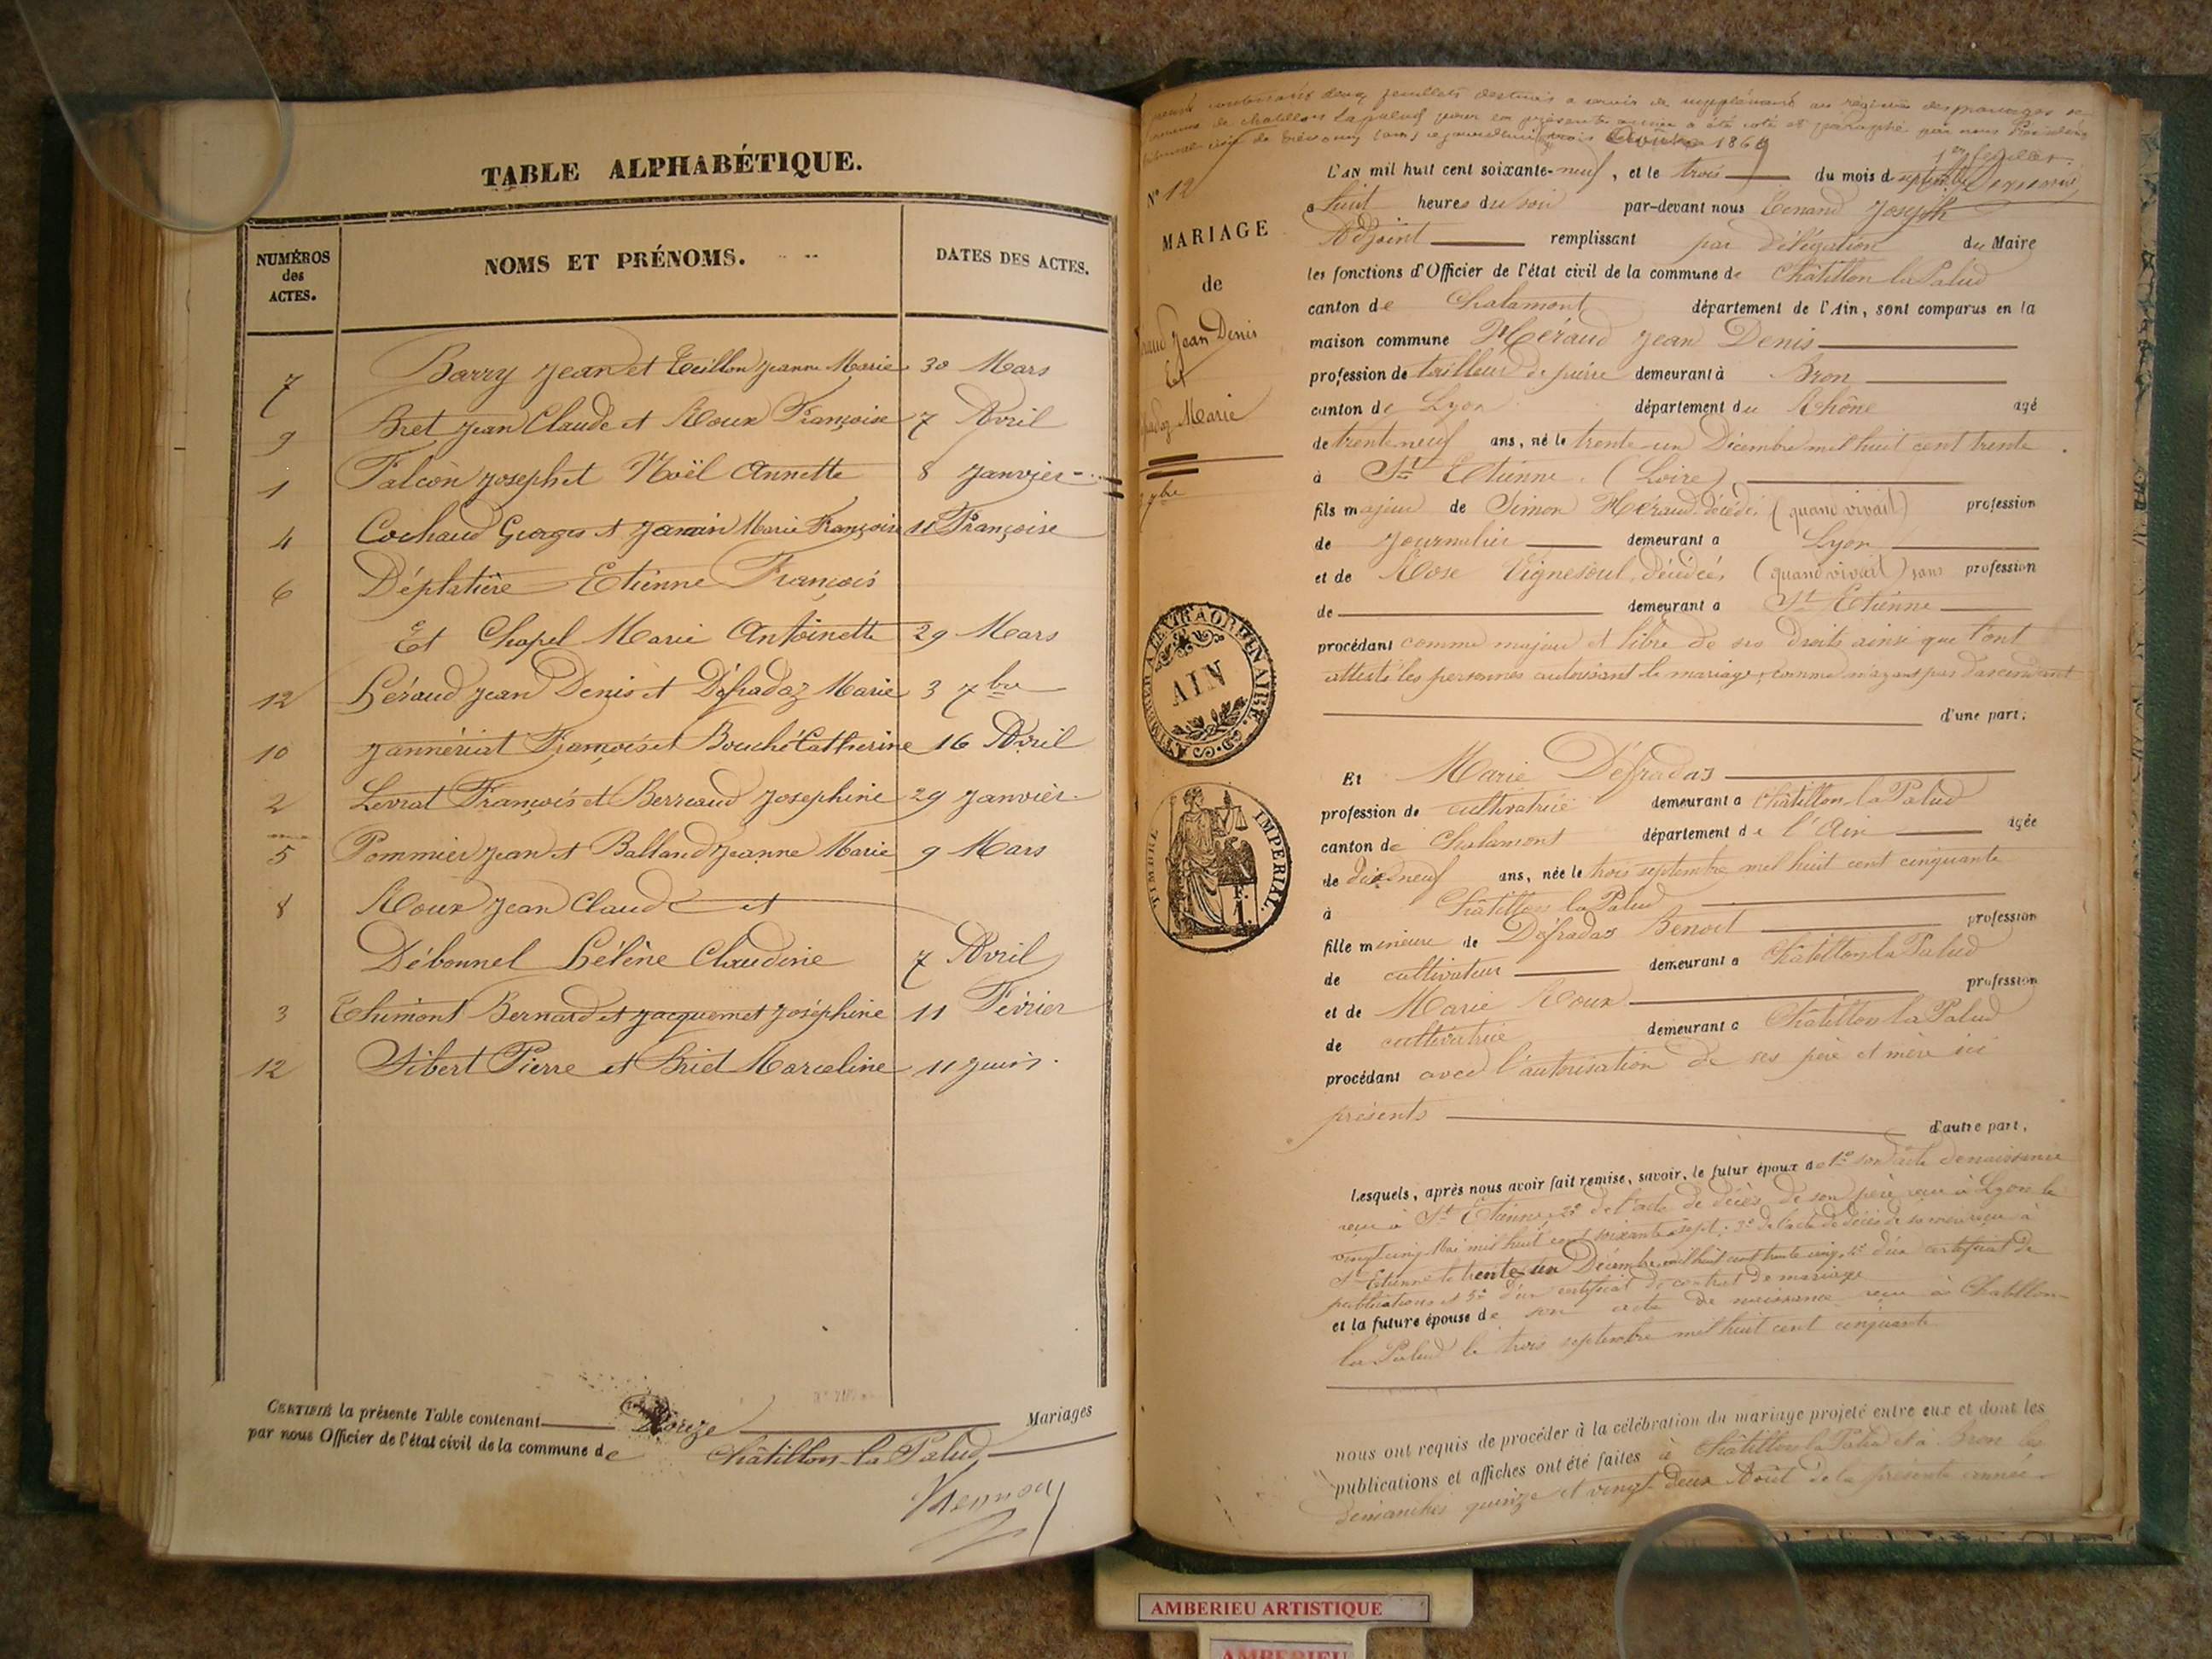 TABLE ALPHABÉTIQUE.
NUMÉROS des ACTES.
NOMS ET PRÉNOMS.
DATES DES ACTES.
7 Barry Jean et Teillon Jeanne Marie 30 Mars
9 Bret Jean Claude et Roux Françoise 7 Avril
1 Falcon Joseph et Noël Annette 8 Janvier
4 Cochaud Georges et Janin Marie Françoise 11 Françoise
6 Déplatière Etienne François
Et Chapel Marie Antoinette 29 Mars
12 Héraud Jean Denis et Défradaz Marie 3 7bre
10 Janneriat François et Bouché Catherine 16 Avril
2 Levrat François et Berreaud Josephine 29 Janvier
5 Pommier Jean et Balland Jeanne Marie 9 Mars
8 Roux Jean Claude et
Débonnel Hélène Claudine 7 Avril
3 Thimont Bernard et Jacquemet Joséphine 11 Février
12 Sibert Pierre et Briet Marceline 11 Juin.
CERTIFIÉ la présente Table contenant Douze Mariages
par nous Officier de l'état civil de la commune de Châtillon-la Palud
1er feuillet
N° 12
MARIAGE
de
Jean Denis
Et
Marie
7bre
L'AN mil huit cent soixante-neuf, et le trois du mois de septembre
à huit heures du soir par-devant nous Joseph
Adjoint remplissant par délégation du Maire
les fonctions d'Officier de l'état civil de la commune de Châtillon la Palud
canton de Chalamont département de l'Ain, sont comparus en la
maison commune Héraud Jean Denis
profession de tailleur de pierre demeurant à Bron
canton de Lyon département du Rhône agé
de trente neuf ans, né le trente-un Décembre mil huit cent trente
à St Etienne (Loire)
fils majeur de Simon Héraud décédé, (quand vivait) profession
de Journalier demeurant a Lyon
et de Rose Vignesoul, décédée, (quand vivait) sans profession
de demeurant a St Etienne
procédant comme majeur et libre de ses droits ainsi que l'ont
attesté les personnes autorisant le mariage, comme n'ayant pas d'ascendant
d'une part;
Et Marie Défradas
profession de cultivatrice demeurant a Châtillon-la Palud
canton de Chalamont département de l'Ain agée
de dix neuf ans, née le trois septembre mil huit cent cinquante
à Châtillon la Palud
fille mineure de Défradas Benoit profession
de cultivateur demeurant a Châtillon-la Palud
et de Marie Roux profession
de cultivatrice demeurant a Châtillon la Palud
procédant avec l'autorisation de ses père et mère ici
présents
d'autre part,
Lesquels, après nous avoir fait remise, savoir, le futur époux de 1° son acte de naissance
reçu à St Etienne, 2° de l'acte de décès de son père reçu à Lyon le
vingt cinq Mai mil huit cent soixante sept; 3° de l'acte de décès de sa mère reçu à
St Etienne le trente-un Décembre mil huit cent trente cinq, 4° d'un certificat de
publications et 5° d'un certificat de contrat de mariage
et la future épouse de son acte de naissance reçu à Chatillon-
la Palud le trois septembre mil huit cent cinquante
nous ont requis de procéder à la célébration du mariage projeté entre eux et dont les
publications et affiches ont été faites à Châtillon la Palud et à Bron les
dimanches quinze et vingt deux Août de la présente année
EXTRAORDINAIRE.
AIN
TIMBRE IMPÉRIAL.
F.
1.
AMBERIEU ARTISTIQUE
AMBERIEU